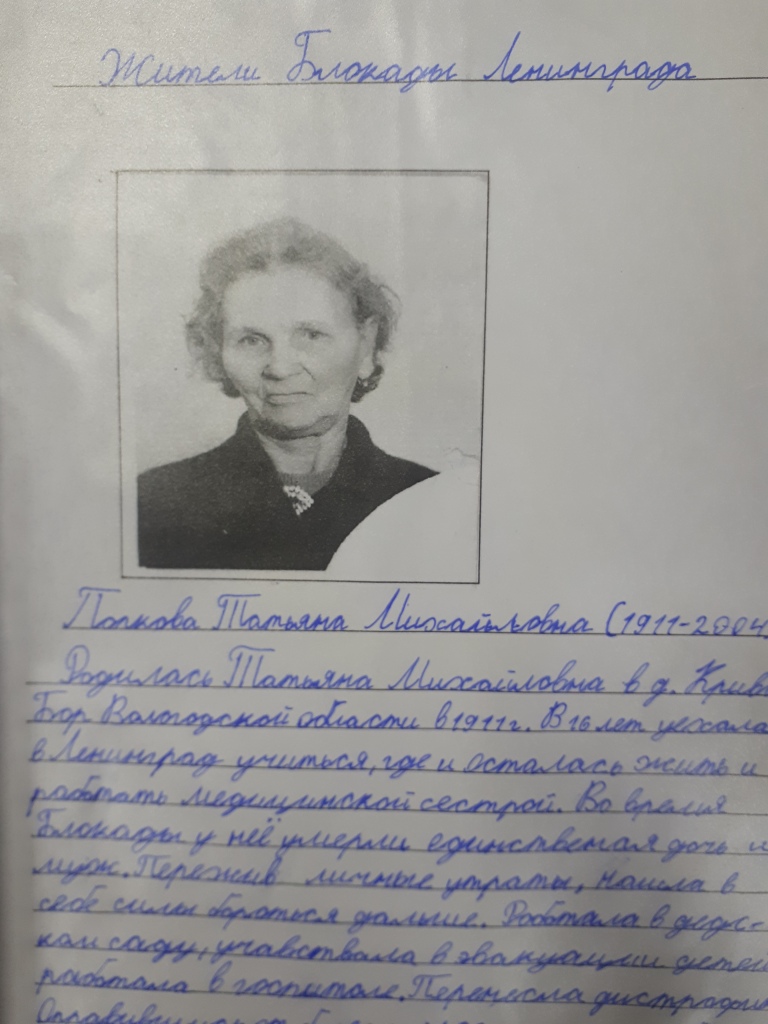 Жители Блокады Ленинграда
Попкова Татьяна Михайловна (1911-2004
Родилась Татьяна Михайловна в д. Крив
Бор Вологодской области в 1911 г. В 16 лет уехала
в Ленинград учиться, где и осталась жить и
работать медицинской сестрой. Во время
Блокады у неё умерли единственая дочь и
муж. Пережив личные утраты, нашла в
себе силы бороться дальше. Работала в детс-
ком саду, учавствовала в эвакуации детей
работала в госпитале. Перенесла дистрофию